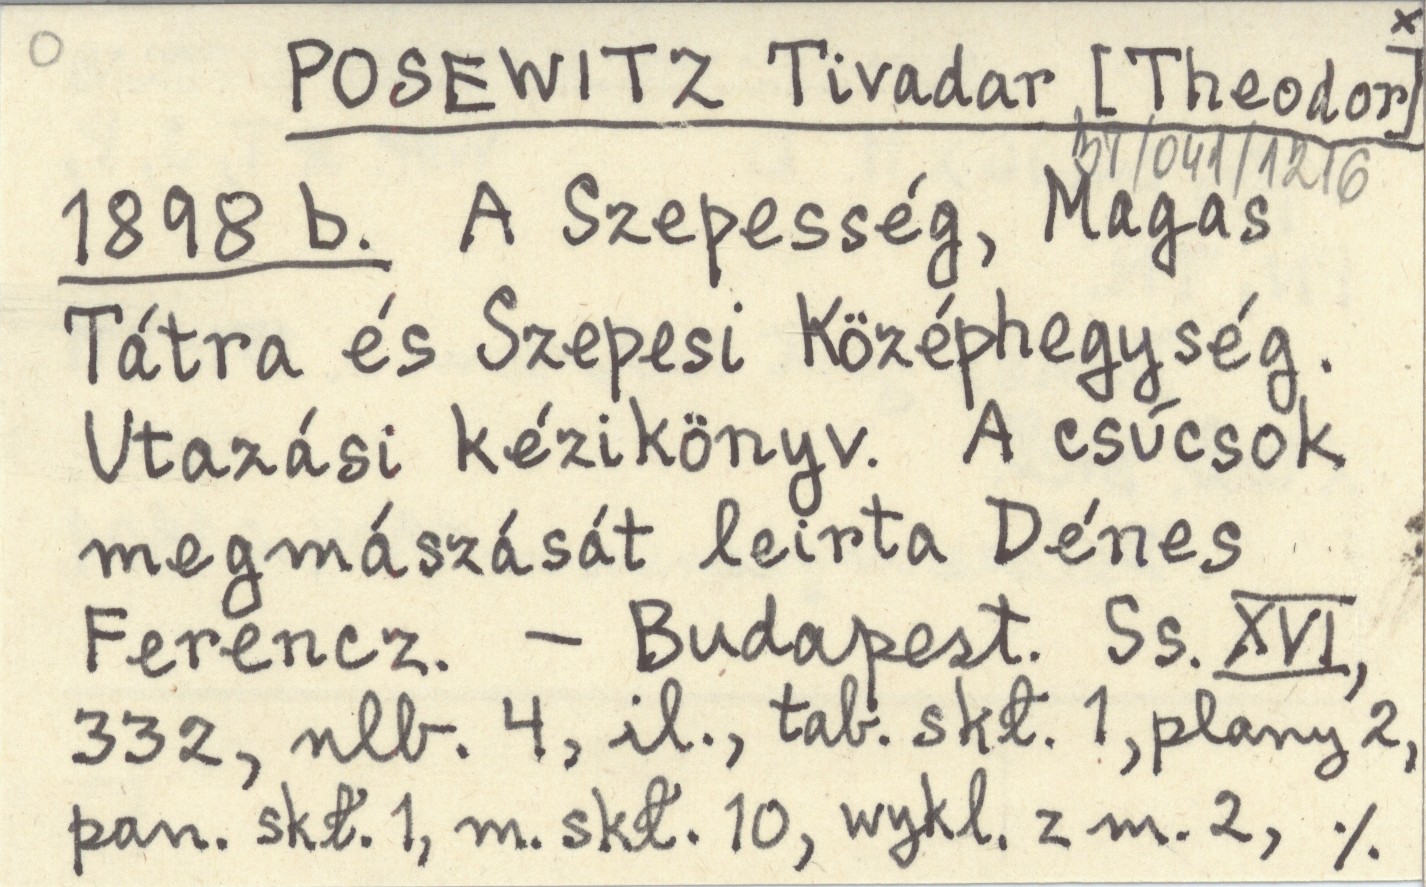 x
POSEWITZ Tivadar [Theodor]
1898 b. A Szepesség, Magas
Tátra és Szepesi Középhegység.
Utazási kézikönyv. A csúcsok
megmászását leirta Dénes
Ferencz. – Budapest. Ss. XVI,
332, nlb. 4, il., tab. skł. 1, plany 2,
pan. skł. 1, m. skł. 10, wykl. z m. 2, ./.